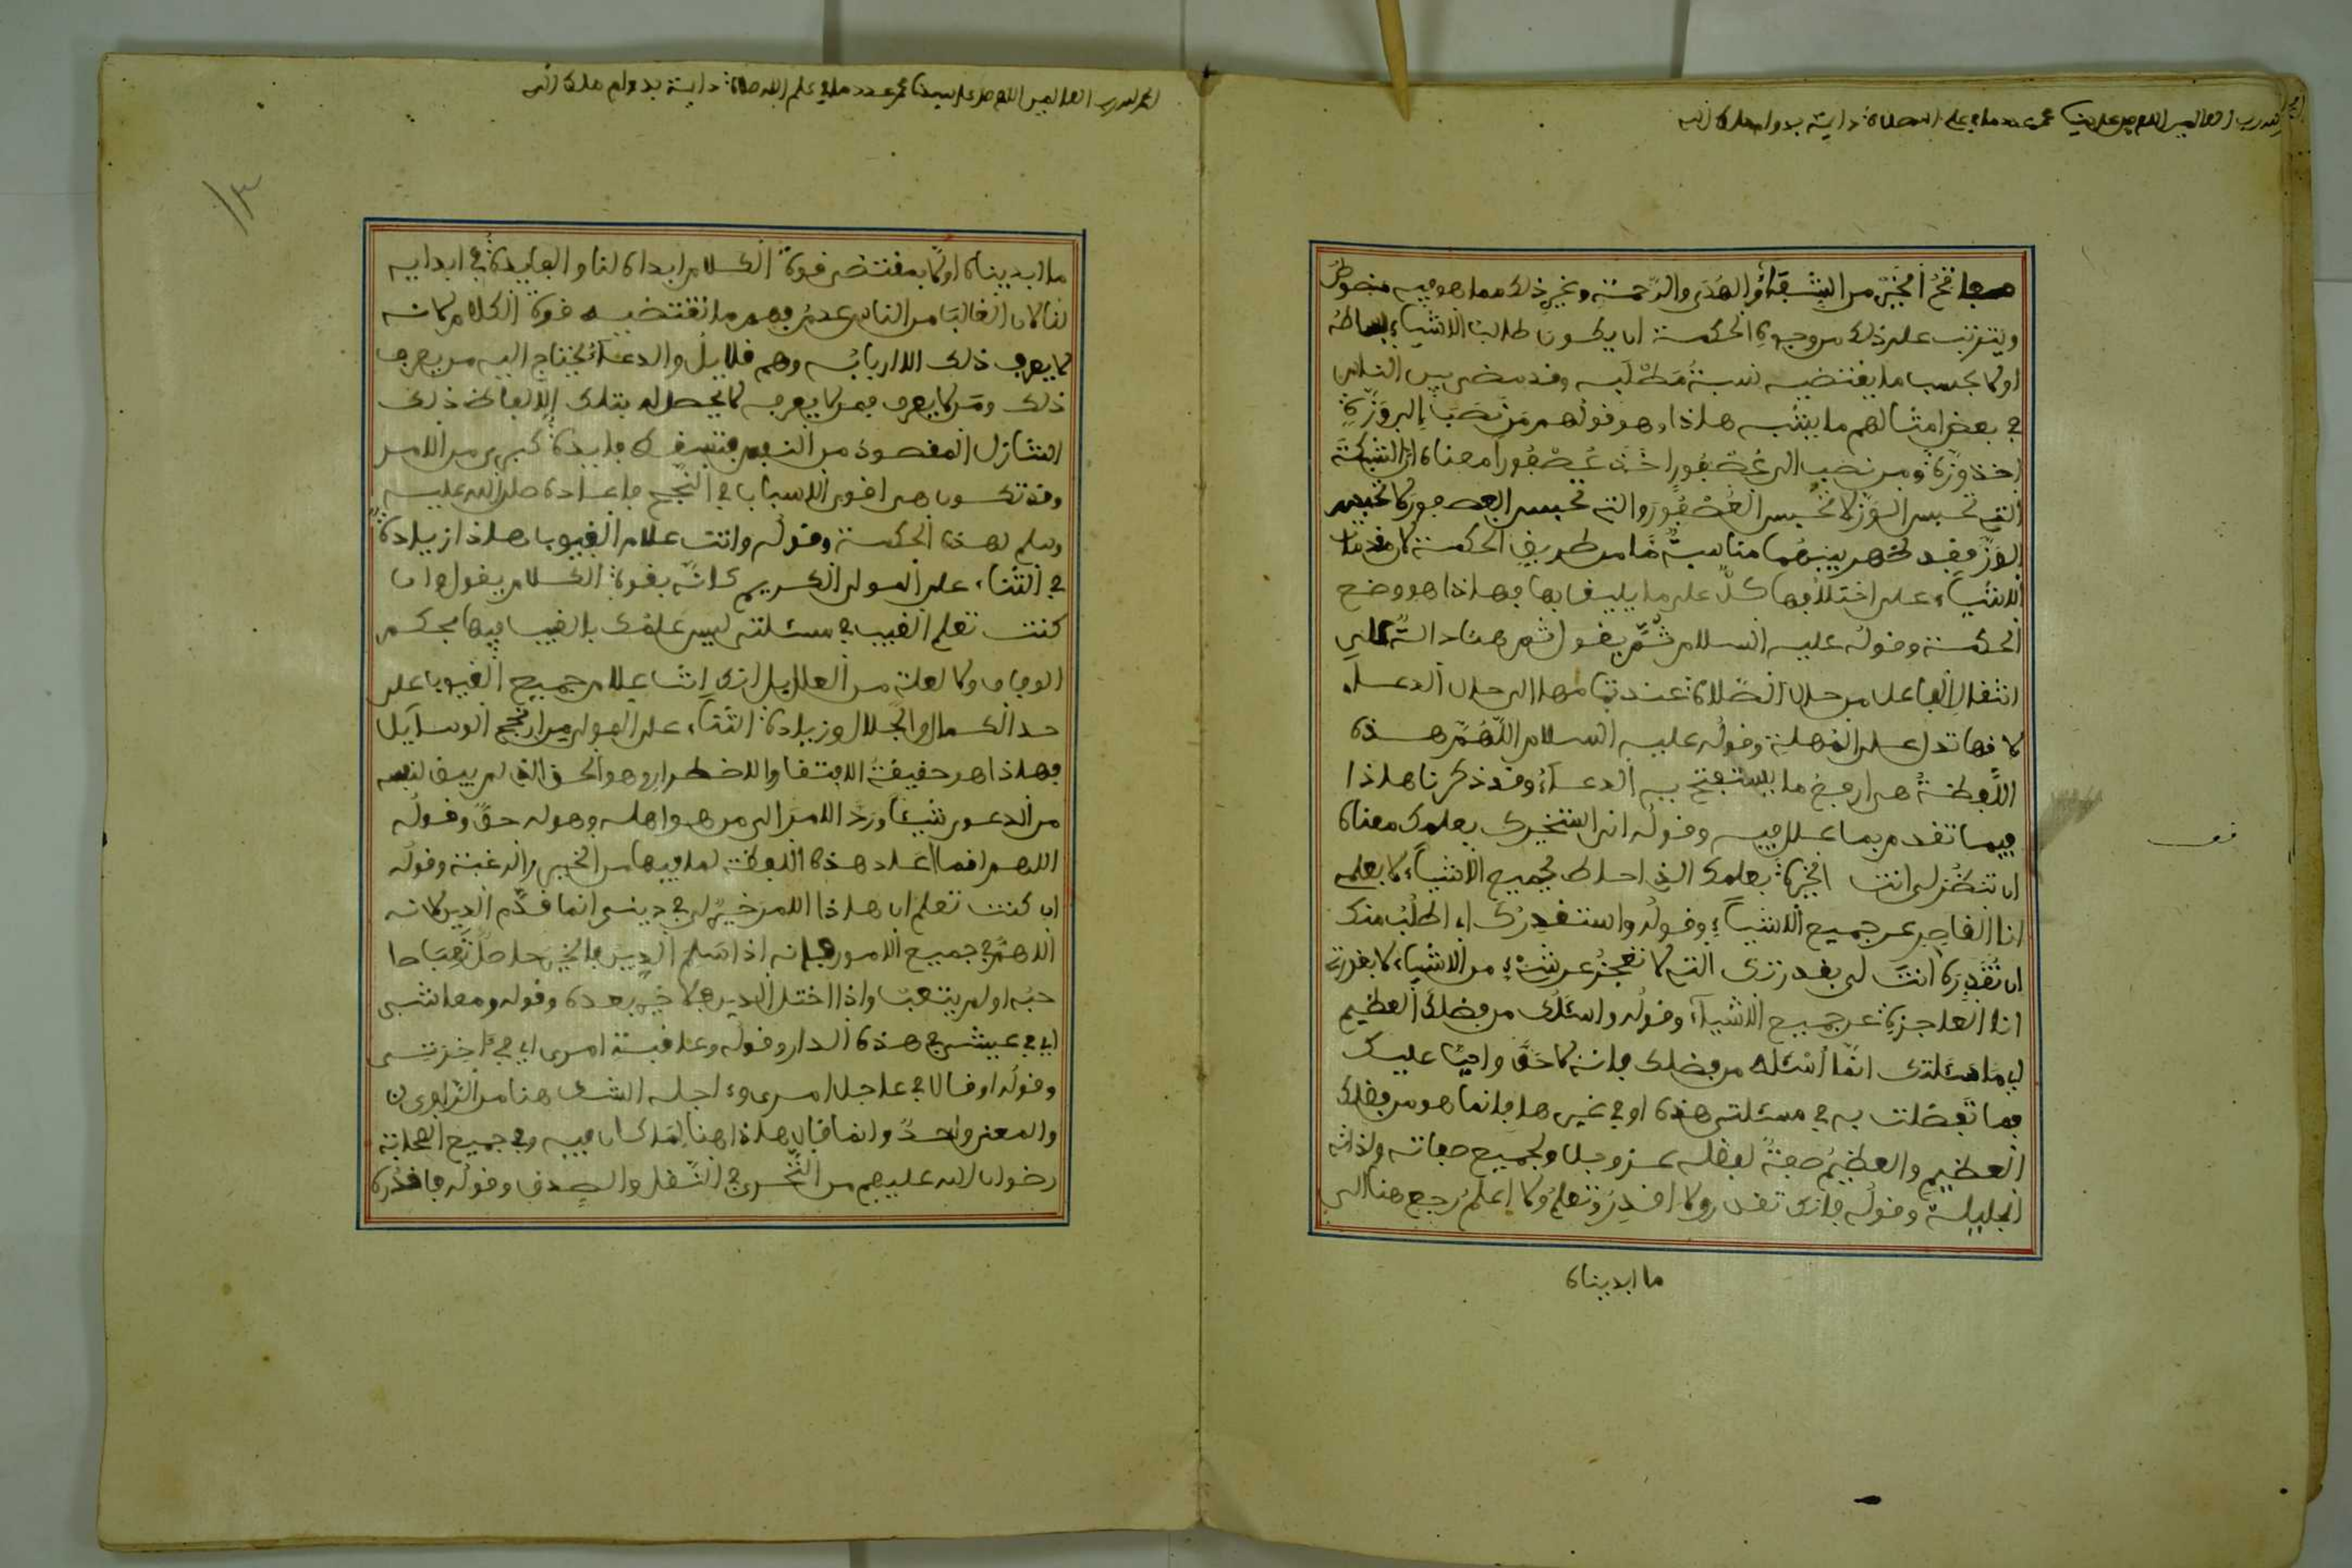 الحمد لله رب العالمين اللهم صل على سيدنا محمد عدد ما في علم الله صلاة دايمة بدوام ملك الله
مفاتح الخير من الشفقة والهدى والرحمة وغير ذلك مما هو فيه منصوص
ويترتب على ذلك من وجوه الحكمة ان يكون طلب الاشياء
اولا بحسب ما يقتضيه نسبة مطلبه وقد مضى بين الناس
في بعض امثالهم ما يشبه هاذا وهو قولهم من نصب الى وزة
اخذ وزة ومن نصب الى عصفور اخذ عصفورا معناه ان الشبكة
التي تحبس الوز لا تحبس العصفور والتي تحبس العصفور لا تحبس
الوز فقد ظهر بينهما مناسبة ما من طريق الحكمة لان
الاشياء على اختلافها كل على ما يليق بها فهاذا هو وضع
الحكمة وقوله عليه السلام ثم يقول ثم هنا دالة على
انتقال الفاعل من حال الصلاة عند تمامها الى حال الدعاء
لانها تدل على المهلة وقوله عليه السلام اللهم هذه
اللفظة هي ارفع ما يستفتح به الدعاء وقد ذكرنا هاذا
فيما تقدم بما علل فيه وقوله اني استخيرك بعلمك معناه
ان تنظر لي انت الخيرة بعلمك الذي احاط بجميع الاشياء لا بعلمي
انا القاصر عن جميع الاشياء وقوله واستقدرك اي اطلب منك
ان تقدره انت لي بقدرتك التي لا تعجز عن شيء من الاشياء لا بقدرتي
انا العاجزة عن جميع الاشياء وقوله واسئلك من فضلك العظيم
اي ما سئلتك انما اسئله من فضلك فانه لا حق واجبا عليك
فما تفضلت به في مسئلتي هذه او في غيرها فانما هو من فضلك
العظيم والعظيم صفة لفضله عز وجل ولجميع صفاته ولذاته
الجليلة وقوله فانك تقدر ولا اقدر وتعلم ولا اعلم رجع هنا الى
ما ابديناه
الحمد لله رب العالمين اللهم صل على سيدنا محمد عدد ما في علم الله صلاة دايمة بدوام ملك الله
١٣
ما ابديناه اولا بمقتضى قوة الكلام ابداه لنا والفايدة في ابدايه
لنا لان الغالب من الناس عدم فهم ما تقتضيه قوة الكلام لانه
لا يعرف ذلك الا اربابه وهم قلايل والدعاء يحتاج اليه من يعرف
ذلك ومن لا يعرف فمن لا يعرف لا يحصل له بتلك الالفاظ ذلك
التنازل المقصود من النفس فتنقصه فايدة كبرى من الامر
وقد تكون هي اقوى الاسباب في النجح فاعاده صلى الله عليه
وسلم لهذه الحكمة وقوله وانت علام الغيوب هاذا زيادة
في الثناء على المولى الكريم كانه بقوة الكلام يقول وان
كنت تعلم الغيب في مسئلتي ليس علمك بالغيب فيها بحكم
الوفاق ولا لعلة من العلل بل انك انت علام جميع الغيوب على
حد الكمال والجلال وزيادة الثناء على المولى من انجح الوسايل
فهاذا هو حقيقة الافتقار والاضطرار وهو الحق الذي لم يبق لنفسه
من الدعوى شيئا ورد الامر الى من هو اهله وهو له حق وقوله
اللهم انما اعاد هذه اللفظة لما فيها من الخير والرغبة وقوله
ان كنت تعلم ان هاذا الامر خير لي في ديني انما قدم الدين لانه
الاهم في جميع الامور فانه اذا سلم الدين فالخير حاصل تعب صا
حبه او لم يتعب واذا اختل الدين فلا خير بعده وقوله ومعاشي
اي في عيشي في هذه الدار وقوله وعاقبة امري اي في اخرتي
وقوله او قال في عاجل امري وءاجله الشك هنا من الراوي ن
والمعنى واحد وانما قال هاذا هنا لما كان فيه وفي جميع الصحابة
رضوان الله عليهم من التحري في النقل والصدق وقوله فاقدره